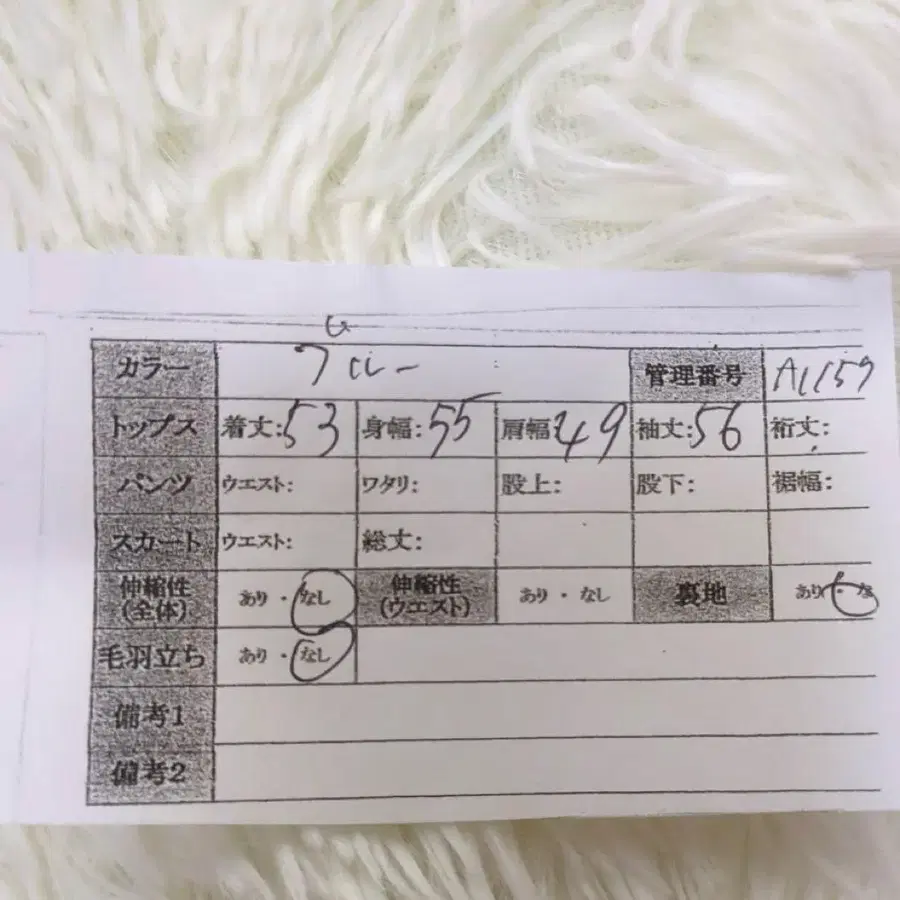 カラー ブルー 管理番号 A1159
トップス 着丈:53 身幅:55 肩幅:49 袖丈:56 裄丈:
パンツ ウエスト: ワタリ: 股上: 股下: 裾幅:
スカート ウエスト: 総丈:
伸縮性(全体) あり・なし 伸縮性(ウエスト) あり・なし 裏地 あり・な
毛羽立ち あり・なし
備考1
備考2